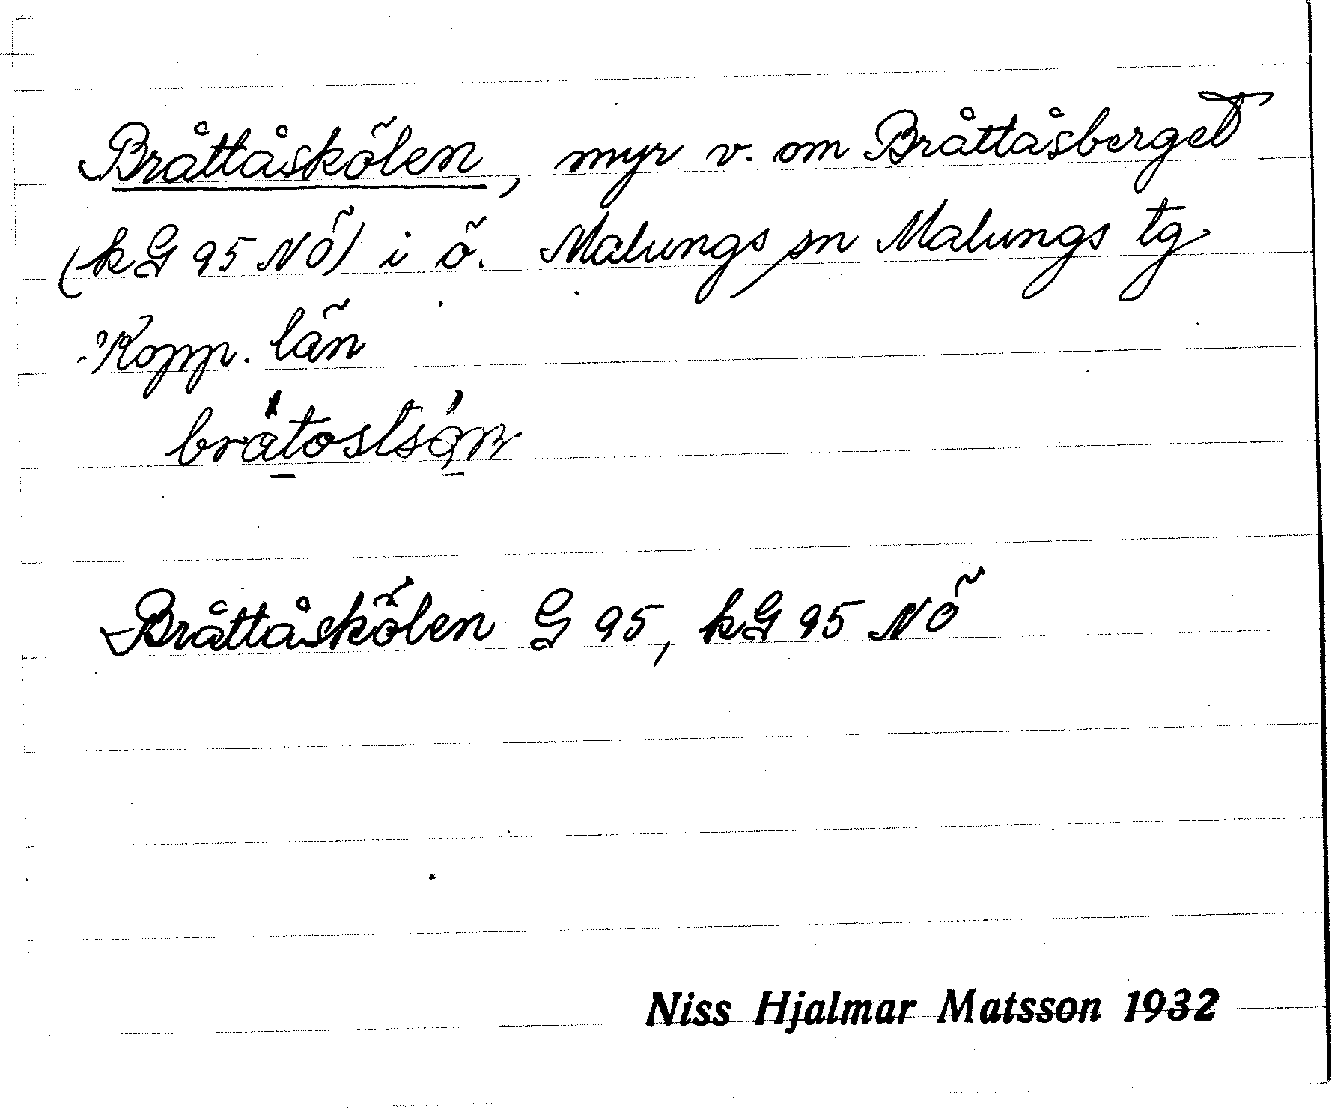 Bråttåskölen, myr v. om Bråttåsberget
(kG 95 NÖ) i ö. Malungs sn Malungs tg
Kopp. län
Bråttåskölen G 95, kG 95 NÖ
Niss Hjalmar Matsson 1932